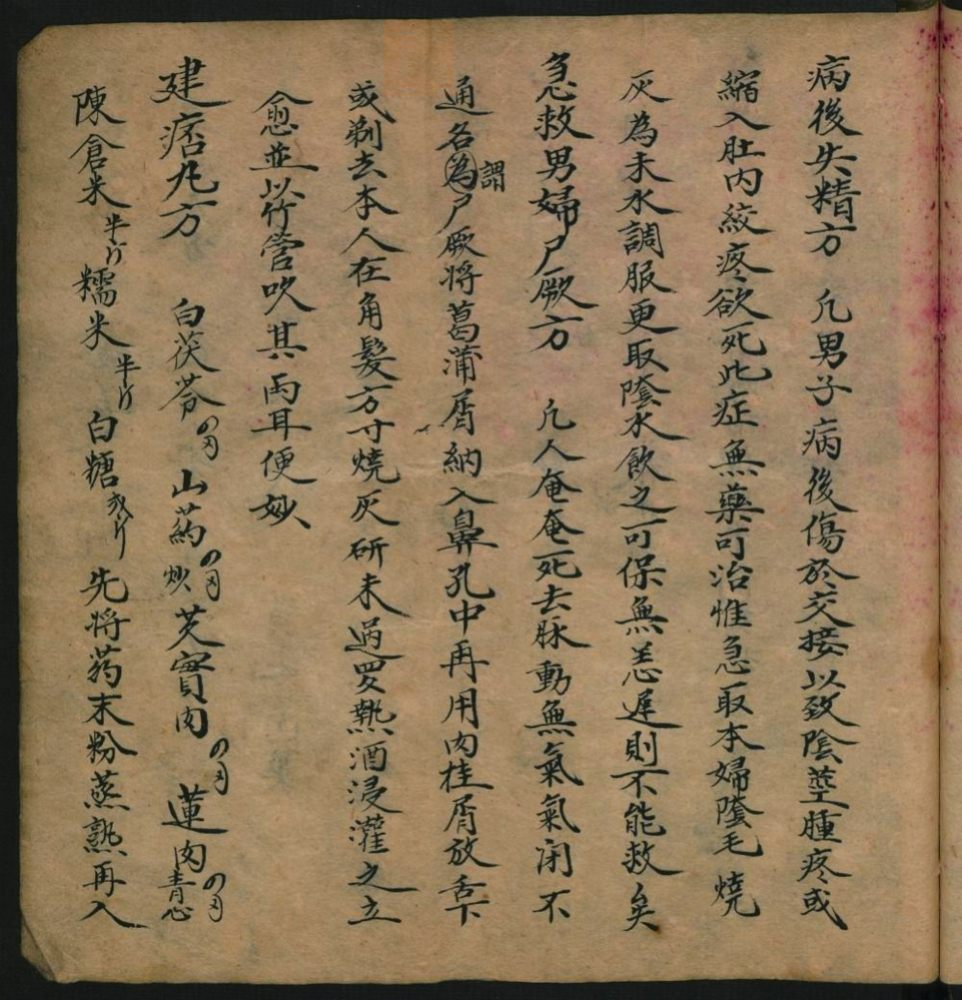 病後失精方 凢男子病後傷於交接以致陰莖腫疼或
縮入肚内絞疼欲死此症無藥可治惟急取本婦隂毛燒
灰為末水調服更取隂水飲之可保無恙遲則不能救矣
急救男婦尸厥方 凢人奄奄死去脉動無氣氣闭不
通名為謂尸厥将菖蒲屑納入鼻孔中再用肉桂屑放舌下
或剃去本人在角髮方寸燒灰研末過罗熱酒浸灌之立
愈並以竹管吹其両耳便妙
建痞丸方 白茯苓 山药炒 芡實肉 蓮肉青心
陳倉米半斤 糯米半斤 白糖 先将药末粉蒸熟再入